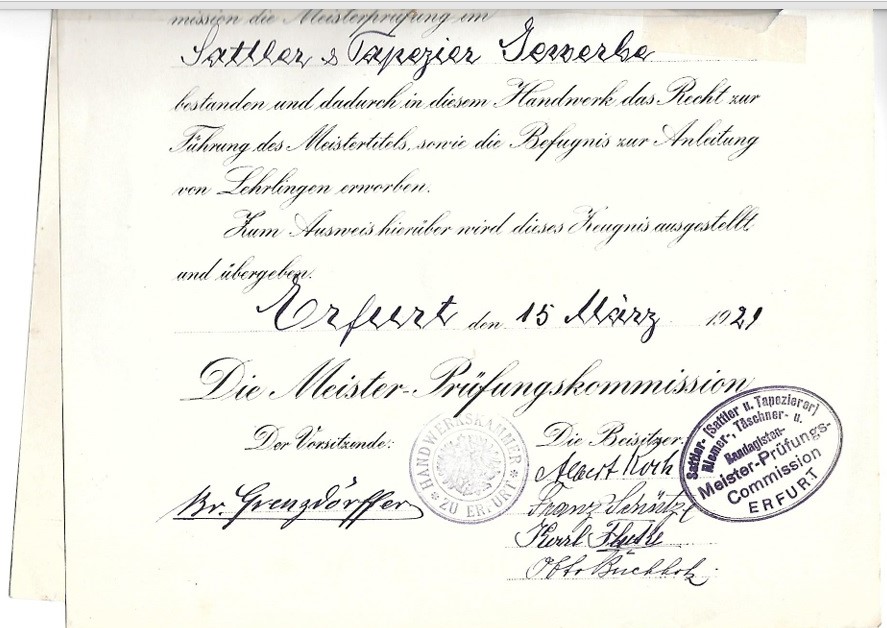 mission die Meisterprüfung im
Sattler & Tapezier Gewerbe
bestanden und dadurch in diesem Handwerk das Recht zur
Führung des Meistertitels, sowie die Befugnis zur Anleitung
von Lehrlingen erworben.
Zum Ausweis hierüber wird dieses Zeugnis ausgestellt
und übergeben.
Erfurt den 15 März 1921
Die Meister-Prüfungskommission
Der Vorsitzende:
Die Beisitzer:
Br. Grenzdörffer
Albert Koch
Franz Schütze
Karl
Otto Buchholz
HANDWERKSKAMMER
ZU ERFURT
Sattler- (Sattler u. Tapezierer)
Riemer-, Täschner- u.
Bandagisten-
Meister-Prüfungs-
Commission
ERFURT